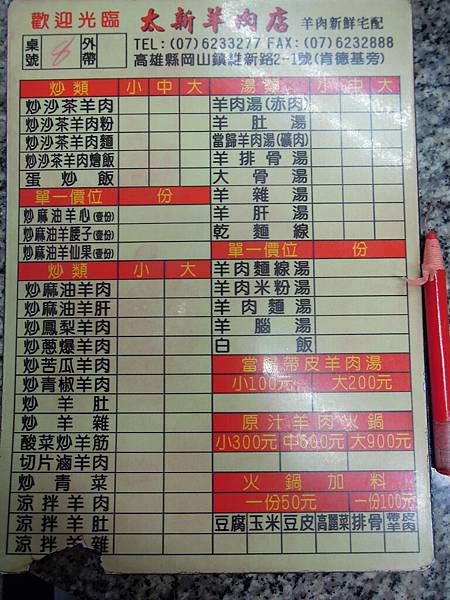 歡迎光臨 太新羊肉店 羊肉新鮮宅配
桌號 8 外帶
TEL:(07)6233277 FAX:(07)6232888
高雄縣岡山鎮維新路2-1號(肯德基旁)
炒類 小 中 大
炒沙茶羊肉
炒沙茶羊肉粉
炒沙茶羊肉麵
炒沙茶羊肉燴飯
蛋炒飯
單一價位 份
炒麻油羊心(壹份)
炒麻油羊腰子(壹份)
炒麻油羊仙果(壹份)
炒類 小 大
炒麻油羊肉
炒麻油羊肝
炒鳳梨羊肉
炒蔥爆羊肉
炒苦瓜羊肉
炒青椒羊肉
炒羊肚
炒羊雜
酸菜炒羊筋
切片滷羊肉
炒青菜
涼拌羊肉
涼拌羊肚
涼拌羊雜
湯類 小 中 大
羊肉湯(赤肉)
羊肚湯
當歸羊肉湯(礦肉)
羊排骨湯
大骨湯
羊雜湯
羊肝湯
乾麵線
單一價位 份
羊肉麵線湯
羊肉米粉湯
羊肉麵湯
羊腦湯
白飯
當歸帶皮羊肉湯
小100元 大200元
原汁羊肉火鍋
小300元 中600元 大900元
火鍋加料
一份50元 一份100元
豆腐 玉米 豆皮 高麗菜 排骨 帶皮羊肉